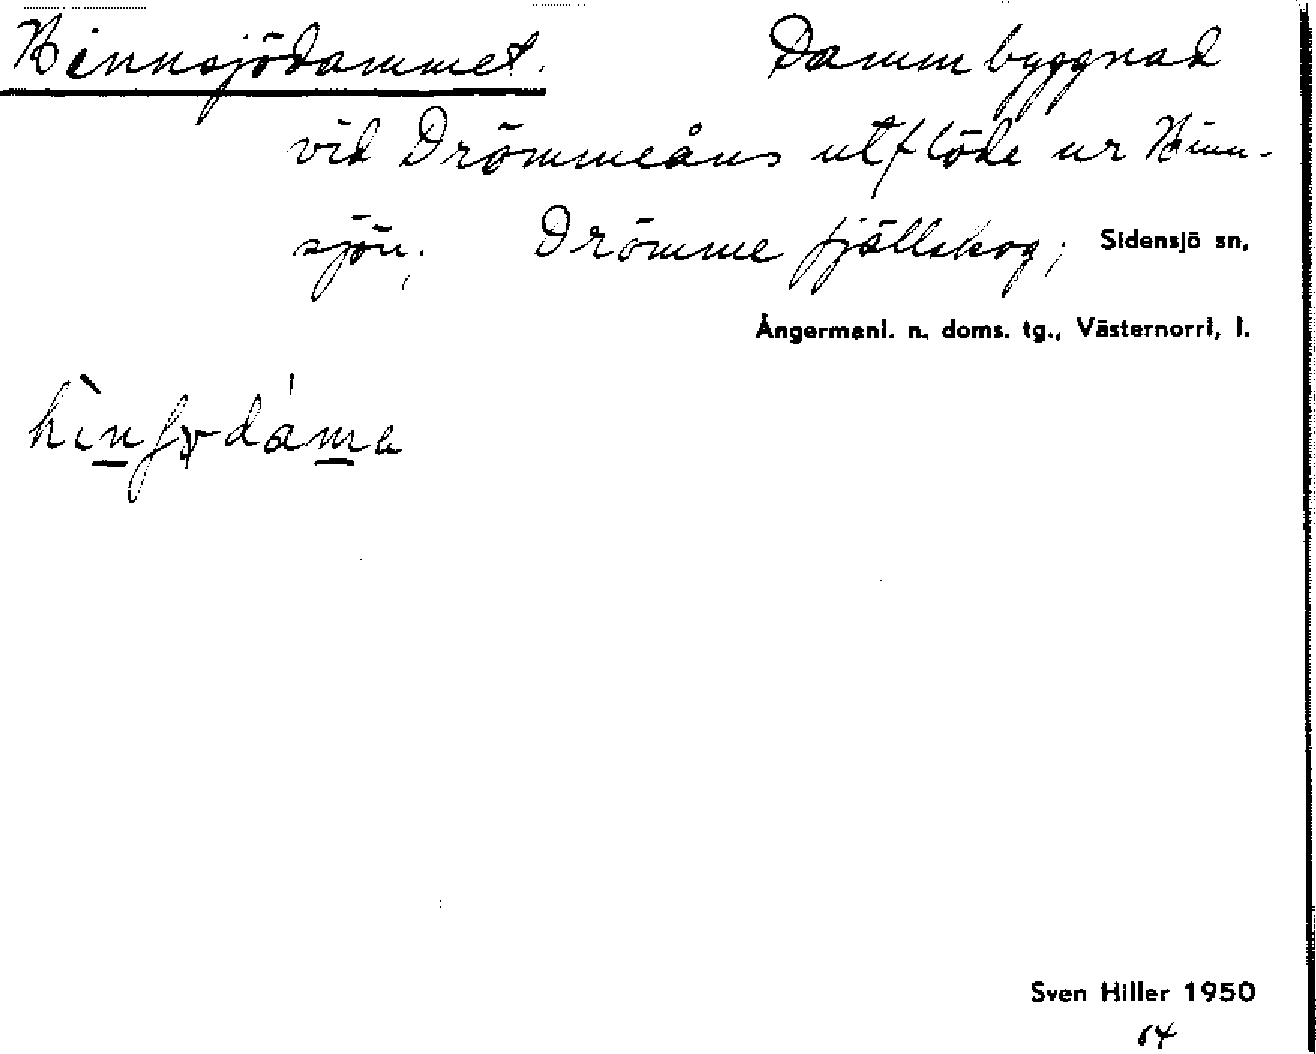 Hinnsjödammet. Dammbyggnad
vid Drömmeåns utflöde ur Hinn-
sjön; Drömme fjällskog; Sidensjö sn,
Ångermanl. n. doms. tg., Västernorrl, l.
Sven Hiller 1950